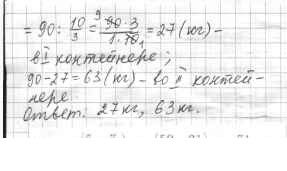 = 90 : 10/3 = 90·3/1·10 = 27 (кг) –
в I контейнере;
90-27=63 (кг) – во II контей-
нере.
Ответ: 27 кг, 63 кг.